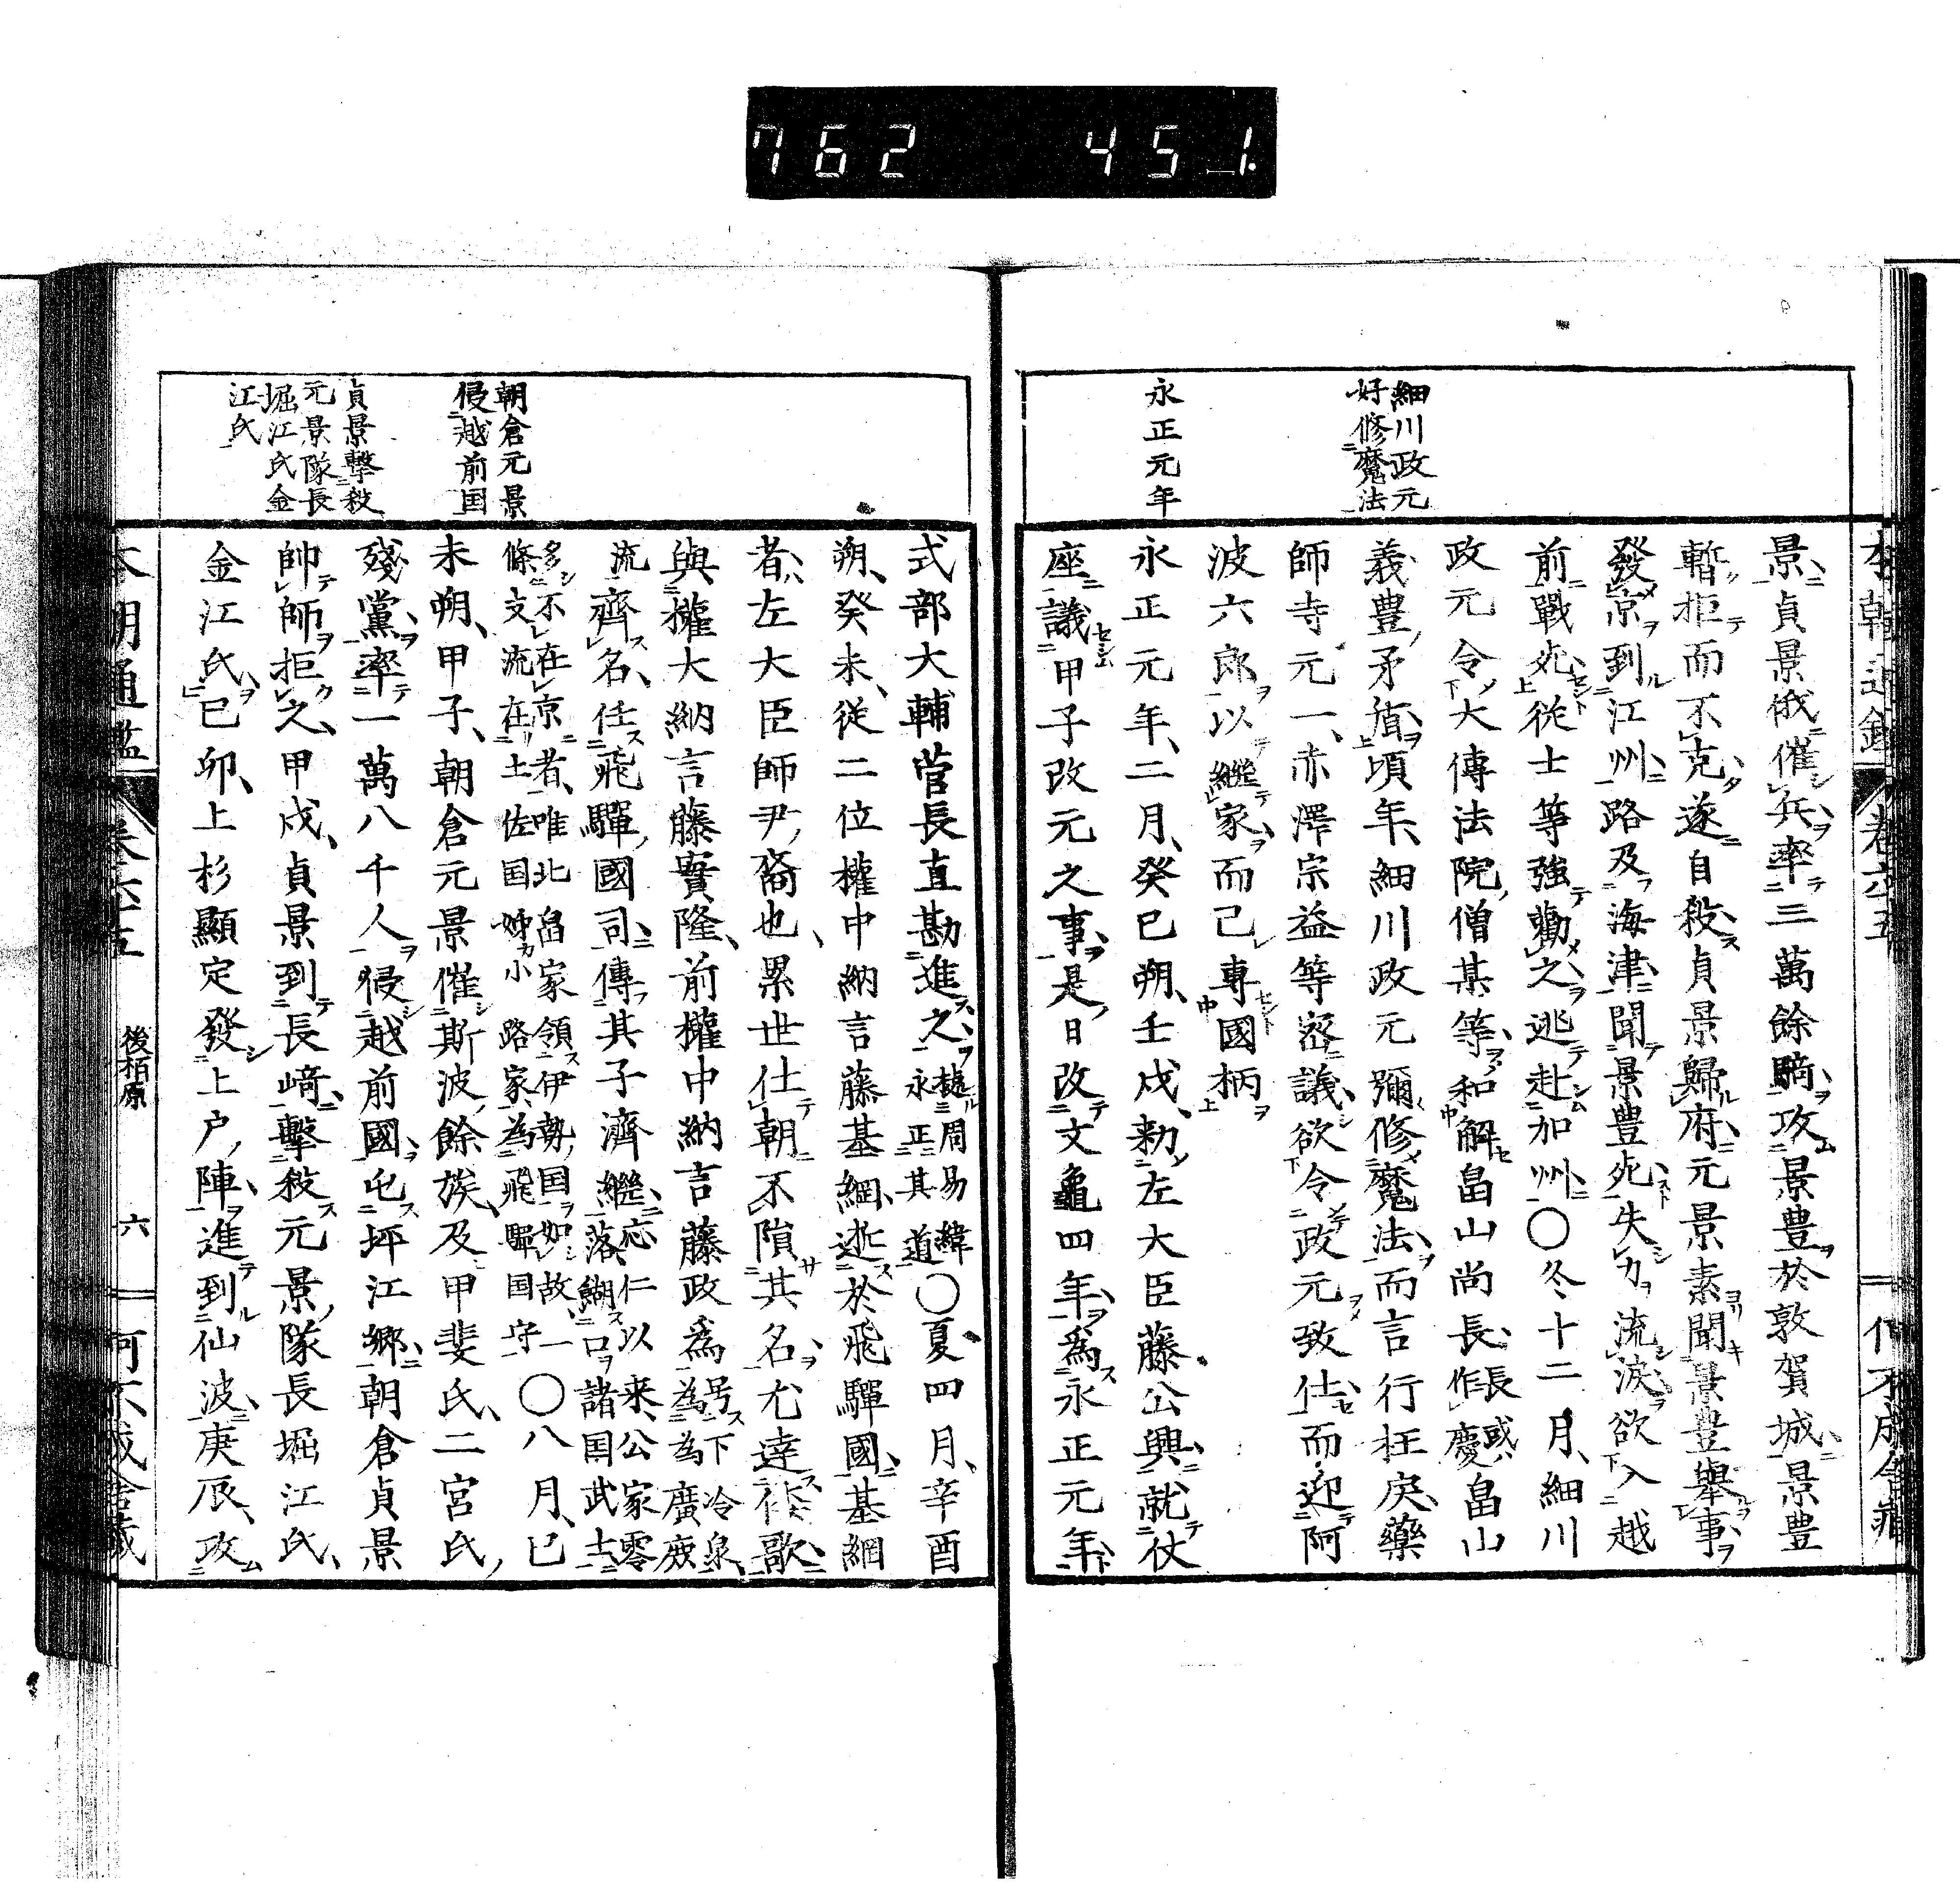 762 451.
細川政元
好修魔法
永正元年
景貞景俄催兵率三萬餘騎攻景豊於敦賀城景豊
暫拒而不克遂自殺貞景歸府元景素聞景豊舉事
發京到江州路及海津聞景豊死失力流涙欲入越
前戰死從士等強勸之逃赴加州〇冬十二月細川
政元令大傳法院僧某等和解畠山尚長長或作慶畠山
義豊矛盾頃年細川政元彌修魔法而言行狂戾藥
師寺元一赤澤宗益等密議欲令政元致仕而迎阿
波六郎以繼家而己專國柄
永正元年二月癸巳朔壬戌勅左大臣藤公興就仗
座議甲子改元之事是日改文龜四年爲永正元年
朝倉元景
侵越前国
貞景擊殺
元景隊長
堀江氏金
江氏
式部大輔菅長直勘進之 周易緯永正其道〇夏四月辛酉
朔癸未從二位權中納言藤基綱逝於飛驒國基綱
者左大臣師尹裔也累世仕朝不隕其名尤達歌
與權大納言藤實隆前權中納言藤政爲号下冷泉為為廣廢
流齊名任飛驒國司傳其子濟繼應仁以来公家零落餬口諸国武士
多不在京者唯北畠家領伊勢国如故一條支流在土佐国姊小路家為飛驒国守〇八月己
未朔甲子朝倉元景催斯波餘族及甲斐氏二宮氏
殘黨率一萬八千人侵越前國屯坪江鄉朝倉貞景
帥師拒之甲戌貞景到長﨑擊殺元景隊長堀江氏
金江氏己卯上杉顯定發上戸陣進到仙波庚辰攻
本朝通鑑 卷六十五 後柏原 六